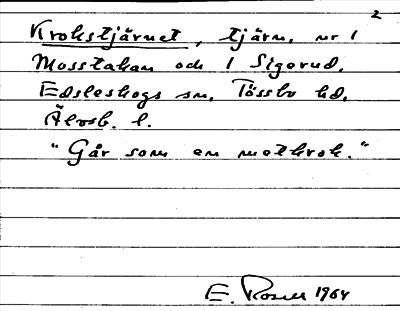 2
Krokstjärnet, tjärn, nr 1
Mosstakan och 1 Sigerud,
Edsleskogs sn, Tössbo hd,
Älvsb. l.
"Går som en metkrok."
E. Rosell 1964